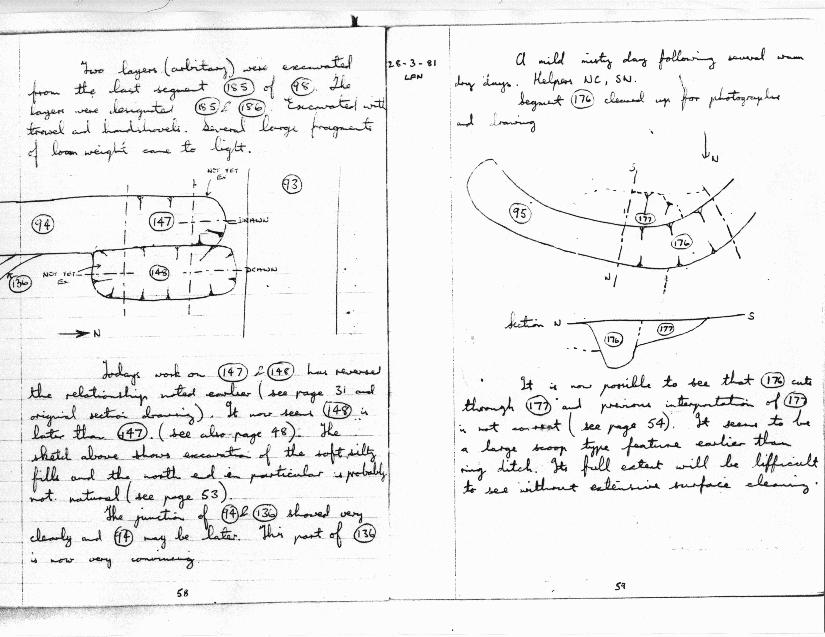 Two layers (arbitary) were excavated
from the last segment (185) of (98). The
layers were designated (185) & (186). Excavated with
trowel and handshovels. Several large fragments
of loom weight came to light.
NOT YET
EX
(93)
(94)
(147)
DRAWN
(136)
NOT YET
EX
(148)
DRAWN
N
Todays work on (147) & (148) has reversed
the relationship noted earlier (see page 31 and
original section drawing). It now seems (148) is
later than (147). (see also page 48). The
sketch above shows excavation of the soft silty
fills and the north end in particular is probably
not natural (see page 53).
The junction of (94) & (136) showed very
clearly and (94) may be later. This part of (136)
is now very convincing
58
28-3-81
A mild misty day following several warm
dry days. Helpers NC, SN.
Segment (176) cleaned up for photographs
and drawing
N
S
(95)
(177)
(176)
N
Section N
S
(176)
(177)
It is now possible to see that (176) cuts
through (177) and previous interpretation of (177)
is not correct (see page 54). It seems to be
a large scoop type feature earlier than
ring ditch. Its full extent will be difficult
to see without extensive surface cleaning.
59